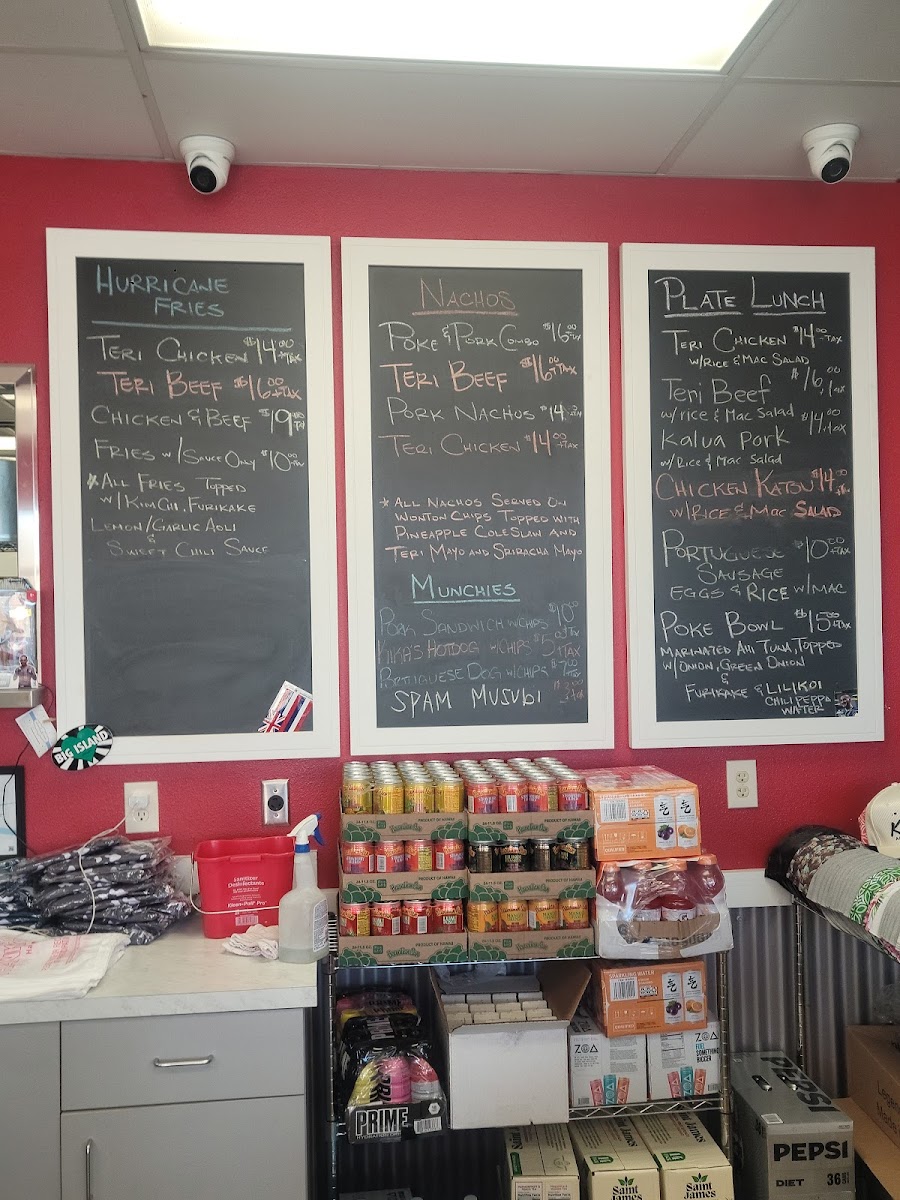 HURRICANE
FRIES
TERI CHICKEN $14.00 +TAX
TERI BEEF $16.00 +TAX
CHICKEN & BEEF $19.00
FRIES w/ SAUCE ONLY $10.00
*ALL FRIES TOPPED
w/ KIMCHI, FURIKAKE
LEMON/GARLIC AOLI
&
SWEET CHILI SAUCE
BIG ISLAND
NACHOS
POKE & PORK COMBO $16.00 +TAX
TERI BEEF $16.00 +TAX
PORK NACHOS $14.00
TERI CHICKEN $14.00 +TAX
*ALL NACHOS SERVED ON
WONTON CHIPS TOPPED WITH
PINEAPPLE COLESLAW AND
TERI MAYO AND SRIRACHA MAYO
MUNCHIES
PORK SANDWICH w/CHIPS $10.00
KIKA'S HOTDOG w/CHIPS $5.00 +TAX
PORTUGUESE DOG w/CHIPS $7.00
SPAM MUSUBI $3.00
PLATE LUNCH
TERI CHICKEN $14.00 +TAX
W/RICE & MAC SALAD
Teri Beef $16.00 +tax
w/rice & Mac Salad
Kalua Pork $14.00 +tax
w/Rice & Mac Salad
CHICKEN KATSU $14.00
W/RICE & MAC SALAD
PORTUGUESE $10.00 +TAX
SAUSAGE
EGGS & RICE w/MAC
POKE BOWL $15.00 +tax
MARINATED AHI TUNA, TOPPED
W/ONION, GREEN ONION
&
FURIKAKE & LILIKOI
CHILI PEPPA
WATER
SANITIZER
Kleen-Pail Pro
PRODUCT OF HAWAII
PRODUCT OF HAWAII
SPARKLING WATER
ZOA
ZOA
FUEL
SOMETHING
BIGGER
PRIME
HYDRATION
PEPSI
PEPSI
DIET
36
Saint James
Saint
James
Saint
James